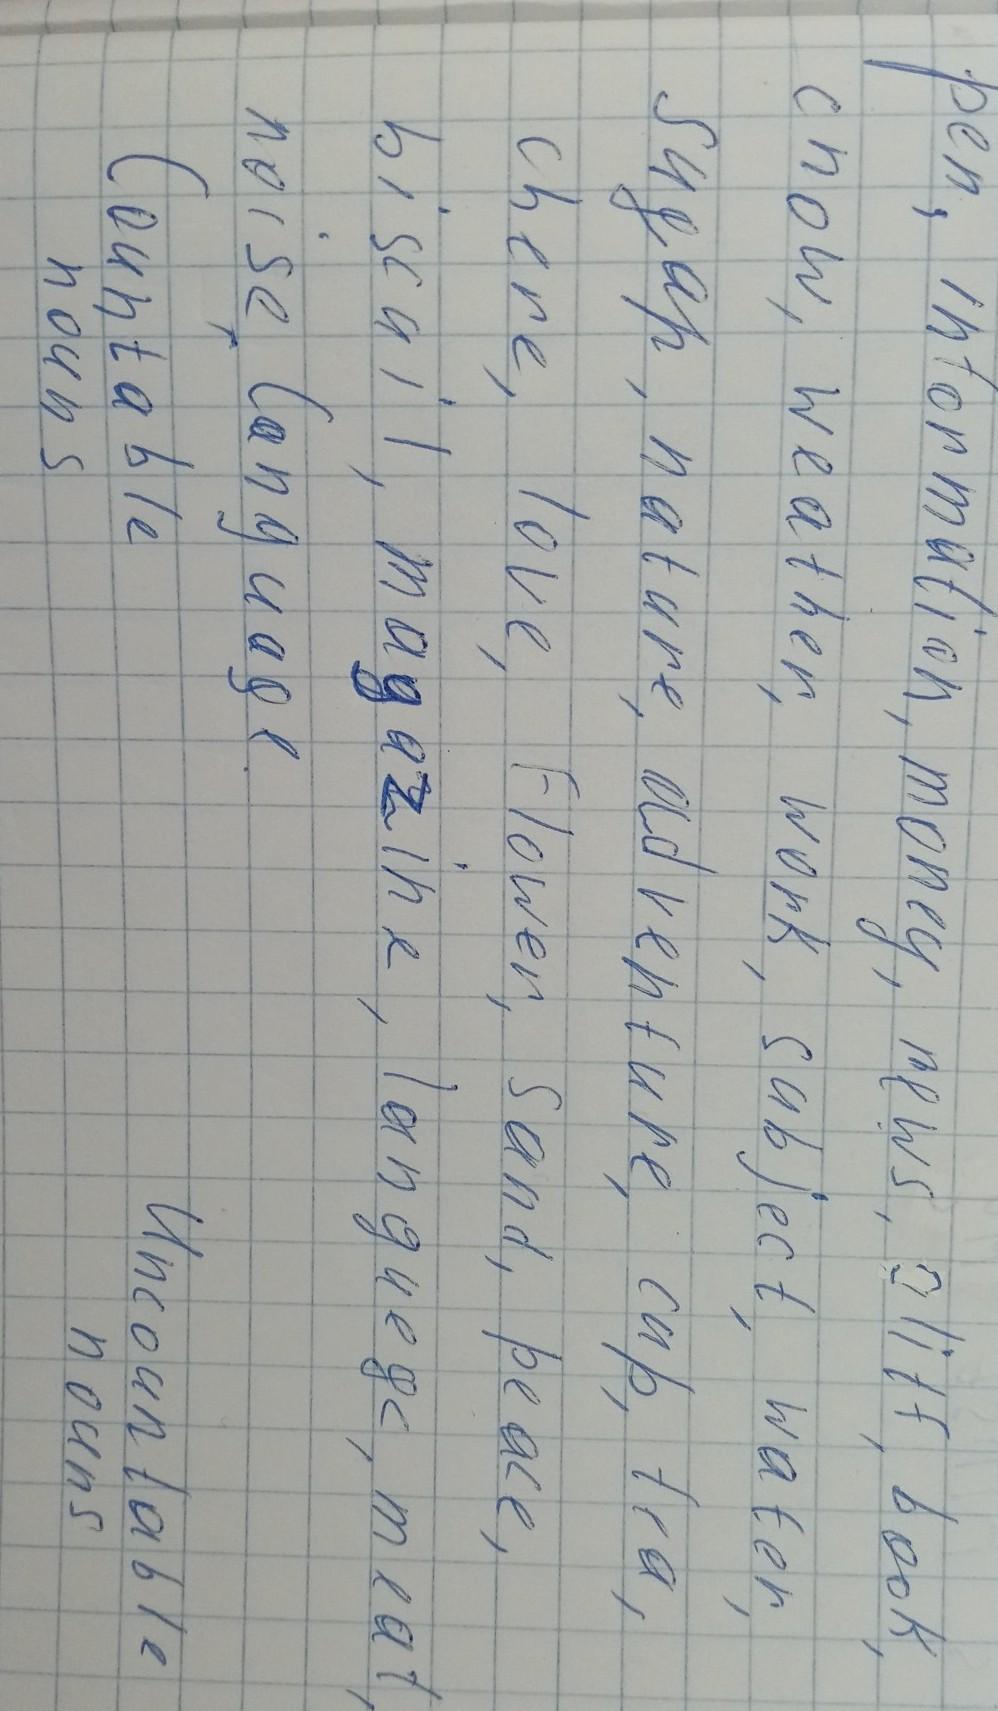 pen, information, money, news, lift, book,
cnow, weather, work, subject, water,
Sugar, nature, adventure, cup, tea,
chere, love, Flower, Sand, peace,
biscuit, magazine, languege, meat,
noise, language.
Countable Uncountable
nouns nouns